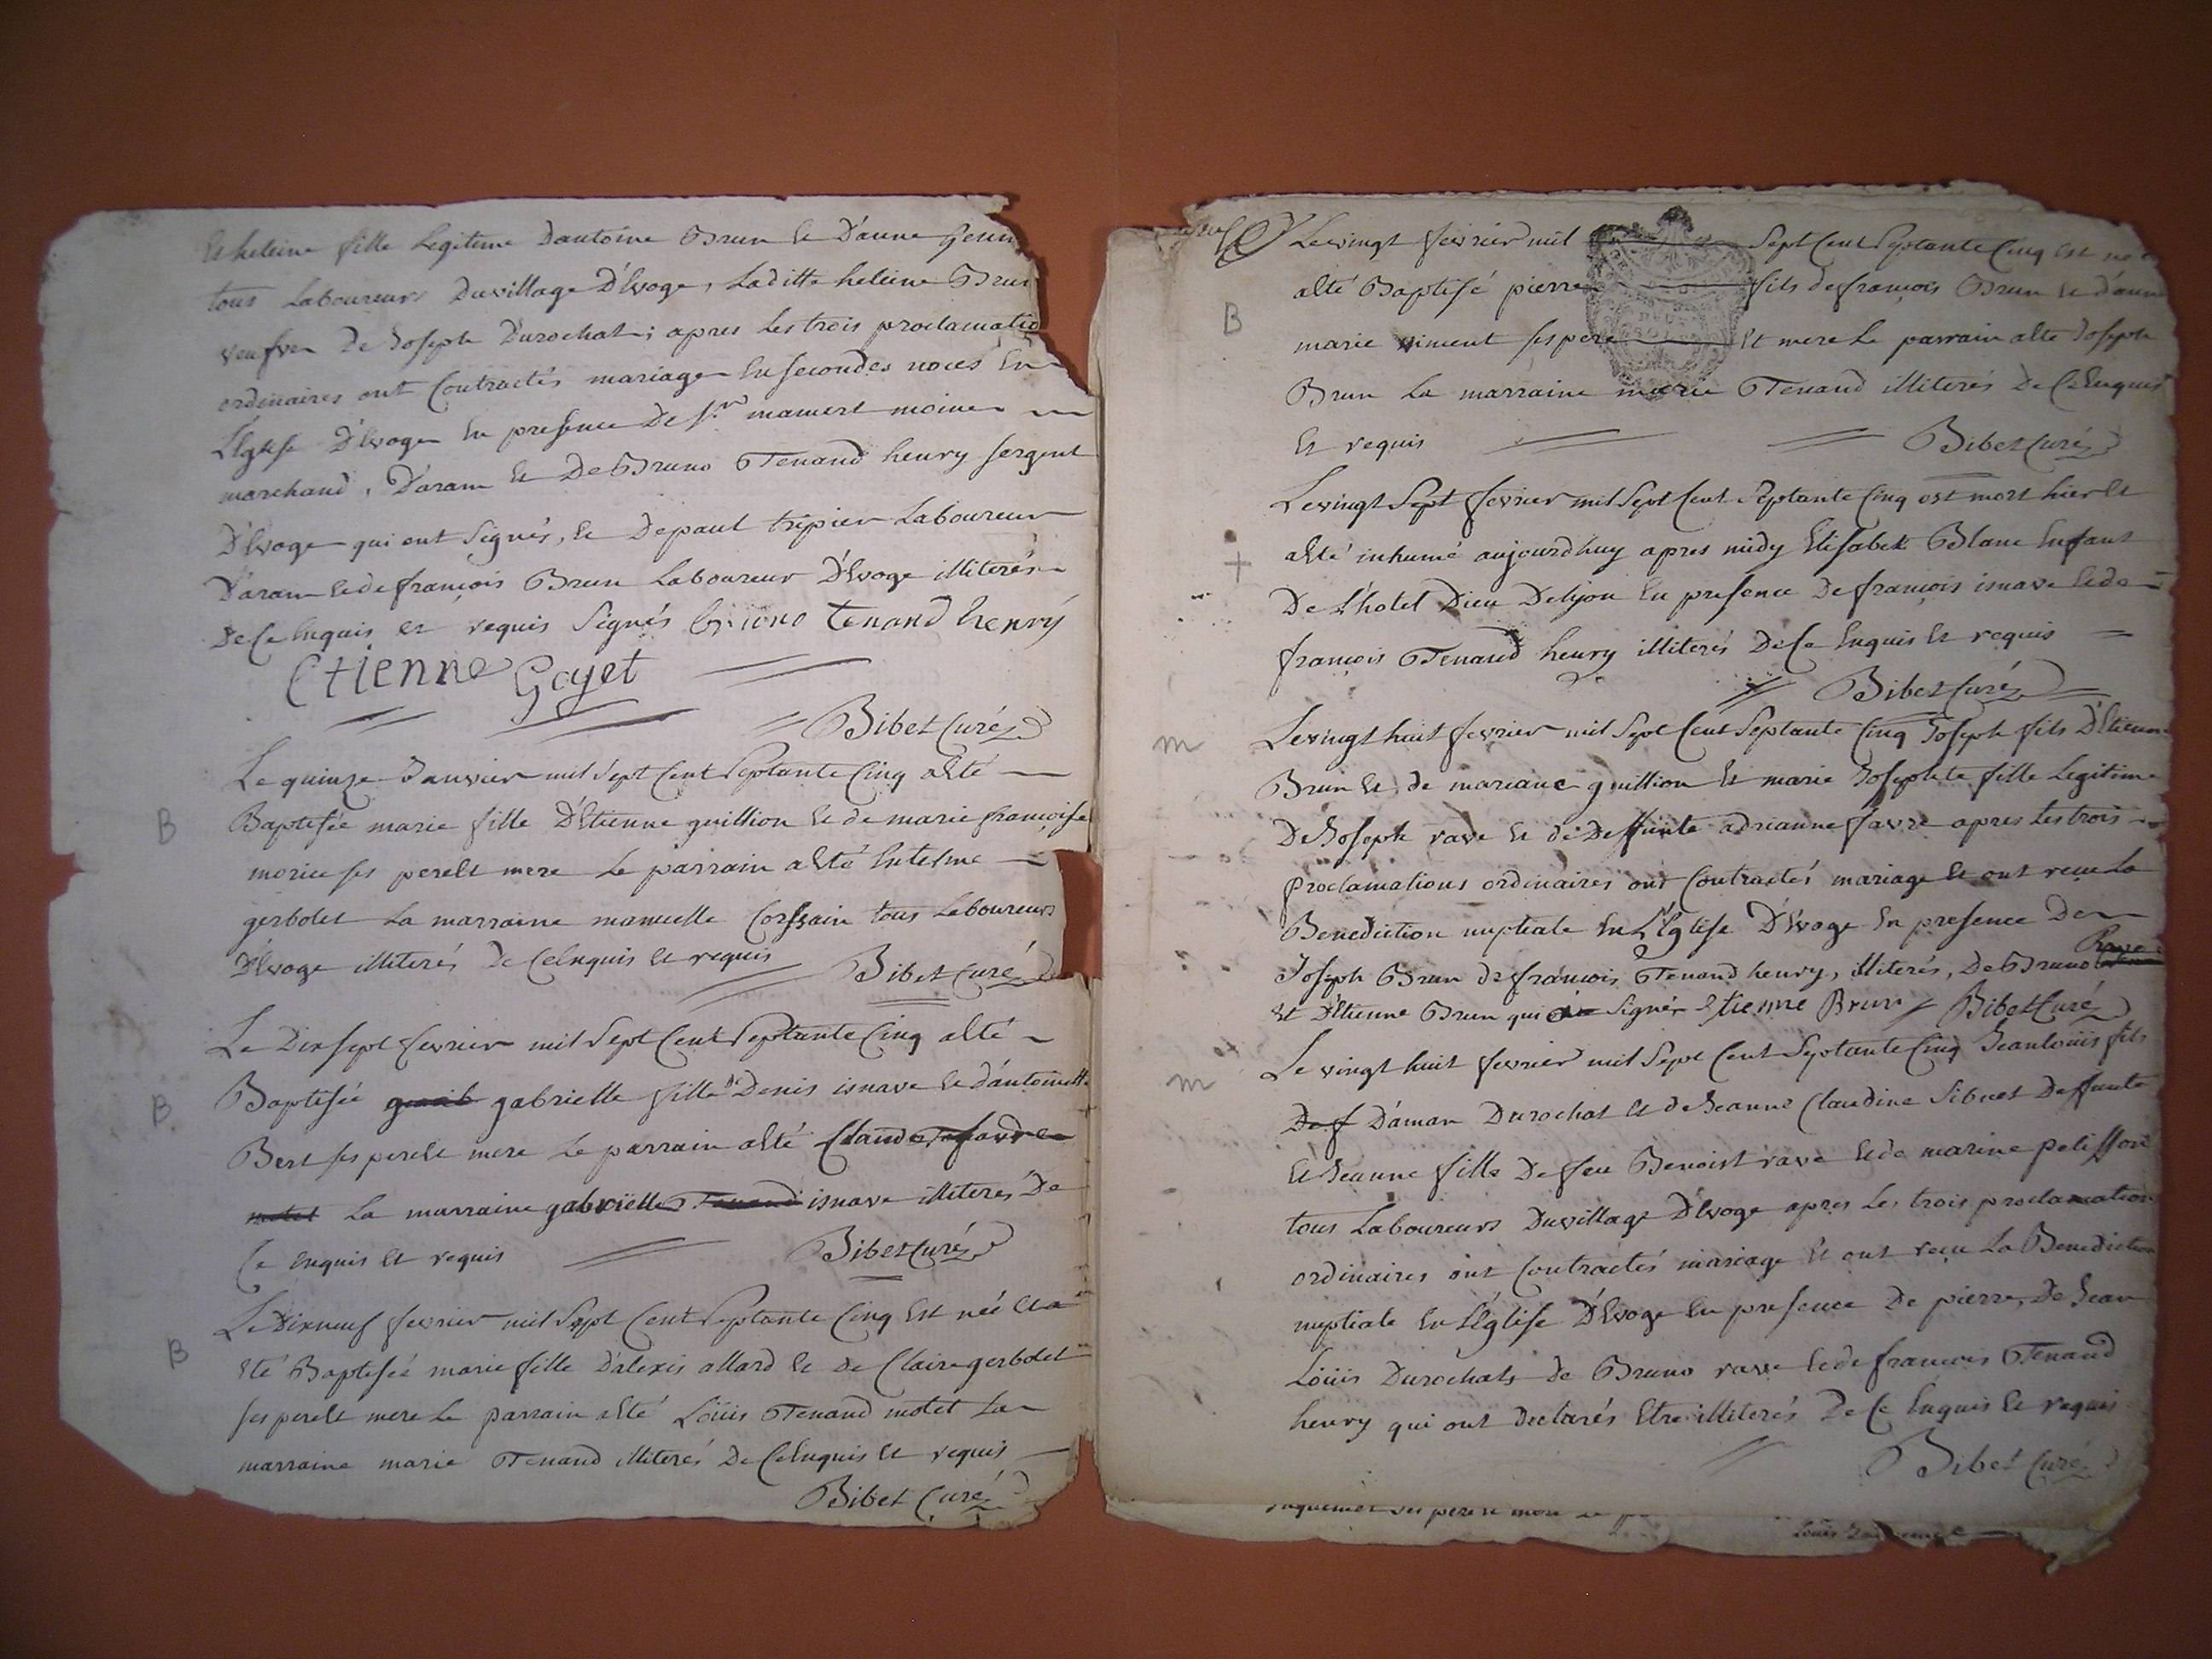 Et heleine fille Legitime Dantoine Brun et D'anne
tous Laboureurs Du village D'Evoge, Laditte heleine Brun
veufve De Joseph Durochat; apres Les trois proclamatio
ordinaires ont Contractés mariage En secondes noces En
L'Eglise D'Evoge En presence De Sr mamert moine
marchand, D'aram Et De Bruno Tenand henry sergent
D'Evoge qui ont Signés, Et De paul tripier Laboureur
D'aram Et de françois Brun Laboureur D'Evoge illiterés
De Ce Enquis et requis Signés Bruno tenand henry
Etienne Goyet
Bibet Curé
Le quinze Janvier mil Sept Cent Septante Cinq a Eté
B
Baptisée marie fille D'Etienne guillion Et de marie françoise
morice ses pere Et mere Le parrain a Eté Entelme
gerbolet La marraine manuelle tous Laboureurs
D'Evoge illiterés De Ce Enquis Et requis Bibet Curé
Le Dix sept fevrier mil Sept Cent Septante Cinq a Eté
B
Baptisée gabrielle fille de Denis isnave Et d'antoinette
Bert ses pere Et mere Le parrain a Eté Claude
motet La marraine gabrielle Tenand isnave illiteres De
Ce enquis Et requis Bibet Curé
Le Dixneuf fevrier mil Sept Cent Septante Cinq Est née Et a
B
Eté Baptisée marie fille D'alexis allard Et de Claire gerbolet
ses pere Et mere Le parrain a Eté Loüis Tenand motet La
marraine marie Tenand illiterés De Ce Enquis Et requis
Bibet Curé
Le vingt fevrier mil Sept Cent Septante Cinq Est né
B
a Eté Baptisé pierre fils de françois Brun Et d'anne
marie niment ses pere Et mere Le parrain a Eté Joseph
Brun La marraine marie Tenand illiterés De Ce Enquis
Et requis Bibet Curé
Le vingt Sept fevrier mil Sept Cent Septante Cinq est mort hier Et
a Eté inhumé aujourdhuy apres midy Elisabet Blanc Enfant
+
De L'hotel Dieu De Lyon En presence De françois isnave Et de
françois Tenand henry illiterés De Ce Enquis Et requis
Bibet Curé
m
Le vingt huit fevrier mil Sept Cent Septante Cinq Joseph fils D'Etienne
Brun Et de mariane guillion Et marie Josephte fille Legitime
De Joseph rave Et de Deffunte adrianne favre apres Les trois
proclamations ordinaires ont Contractés mariage Et ont reçu La
Benediction nuptiale En L'Eglise D'Evoge En presence De
Joseph Brun de françois Tenand henry, illiterés, De Bruno Rave
Et D'Etienne Brun qui a Signér Etienne Brun Bibet Curé
m
Le vingt huit fevrier mil Sept Cent Septante Cinq Jean Loüis fils
De f D'aman Durochat Et de Jeanne Claudine Sibuet Deffunte
Et Jeanne fille De feu Benoist rave Et de marine pelisson
tous Laboureurs Du village D'Evoge apres Les trois proclamation
ordinaires ont Contractés mariage Et ont reçu La Benediction
nuptiale En L'Eglise D'Evoge En presence De pierre, De Jean
Loüis Durochats de Bruno rave Et de françois Tenand
henry qui ont Declarés Etre illiterés De Ce Enquis Et requis
Bibet Curé
ses pere Et
Loüis